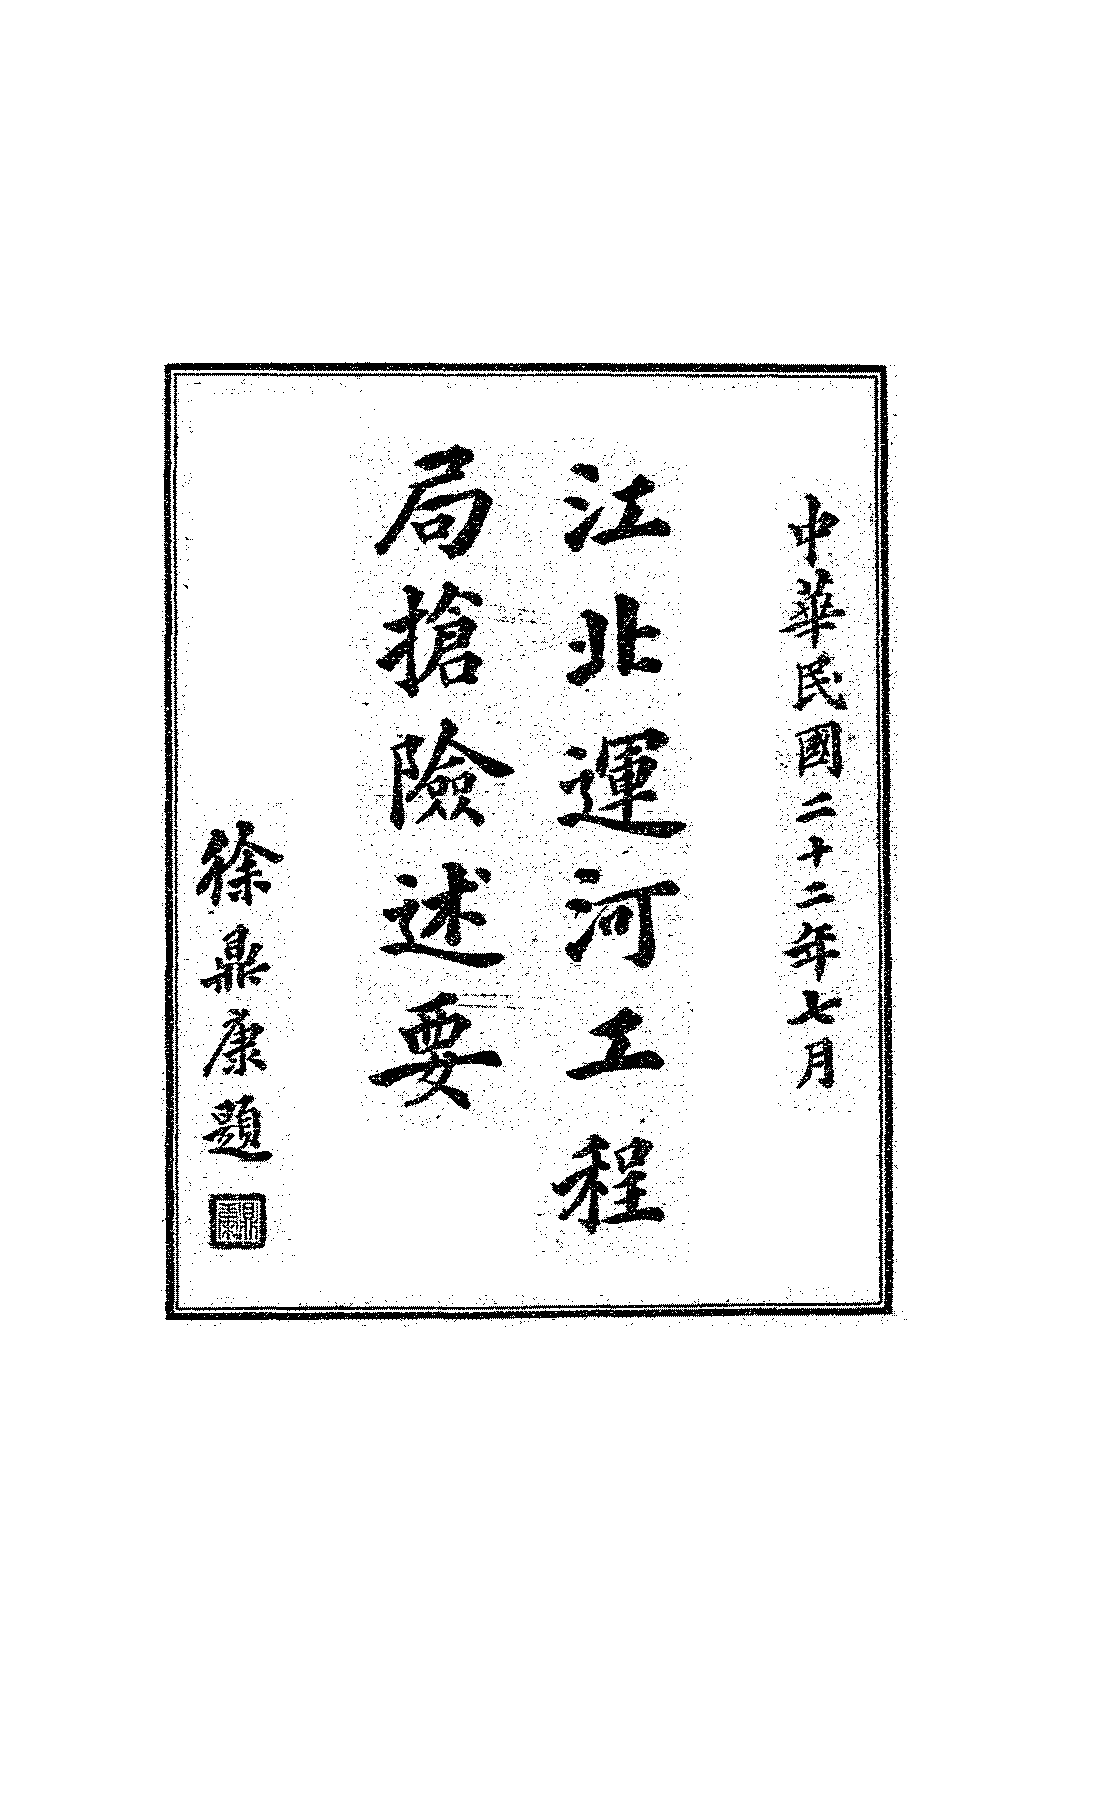 中華民國二十二年七月
江北運河工程
局搶險述要
徐鼎康題